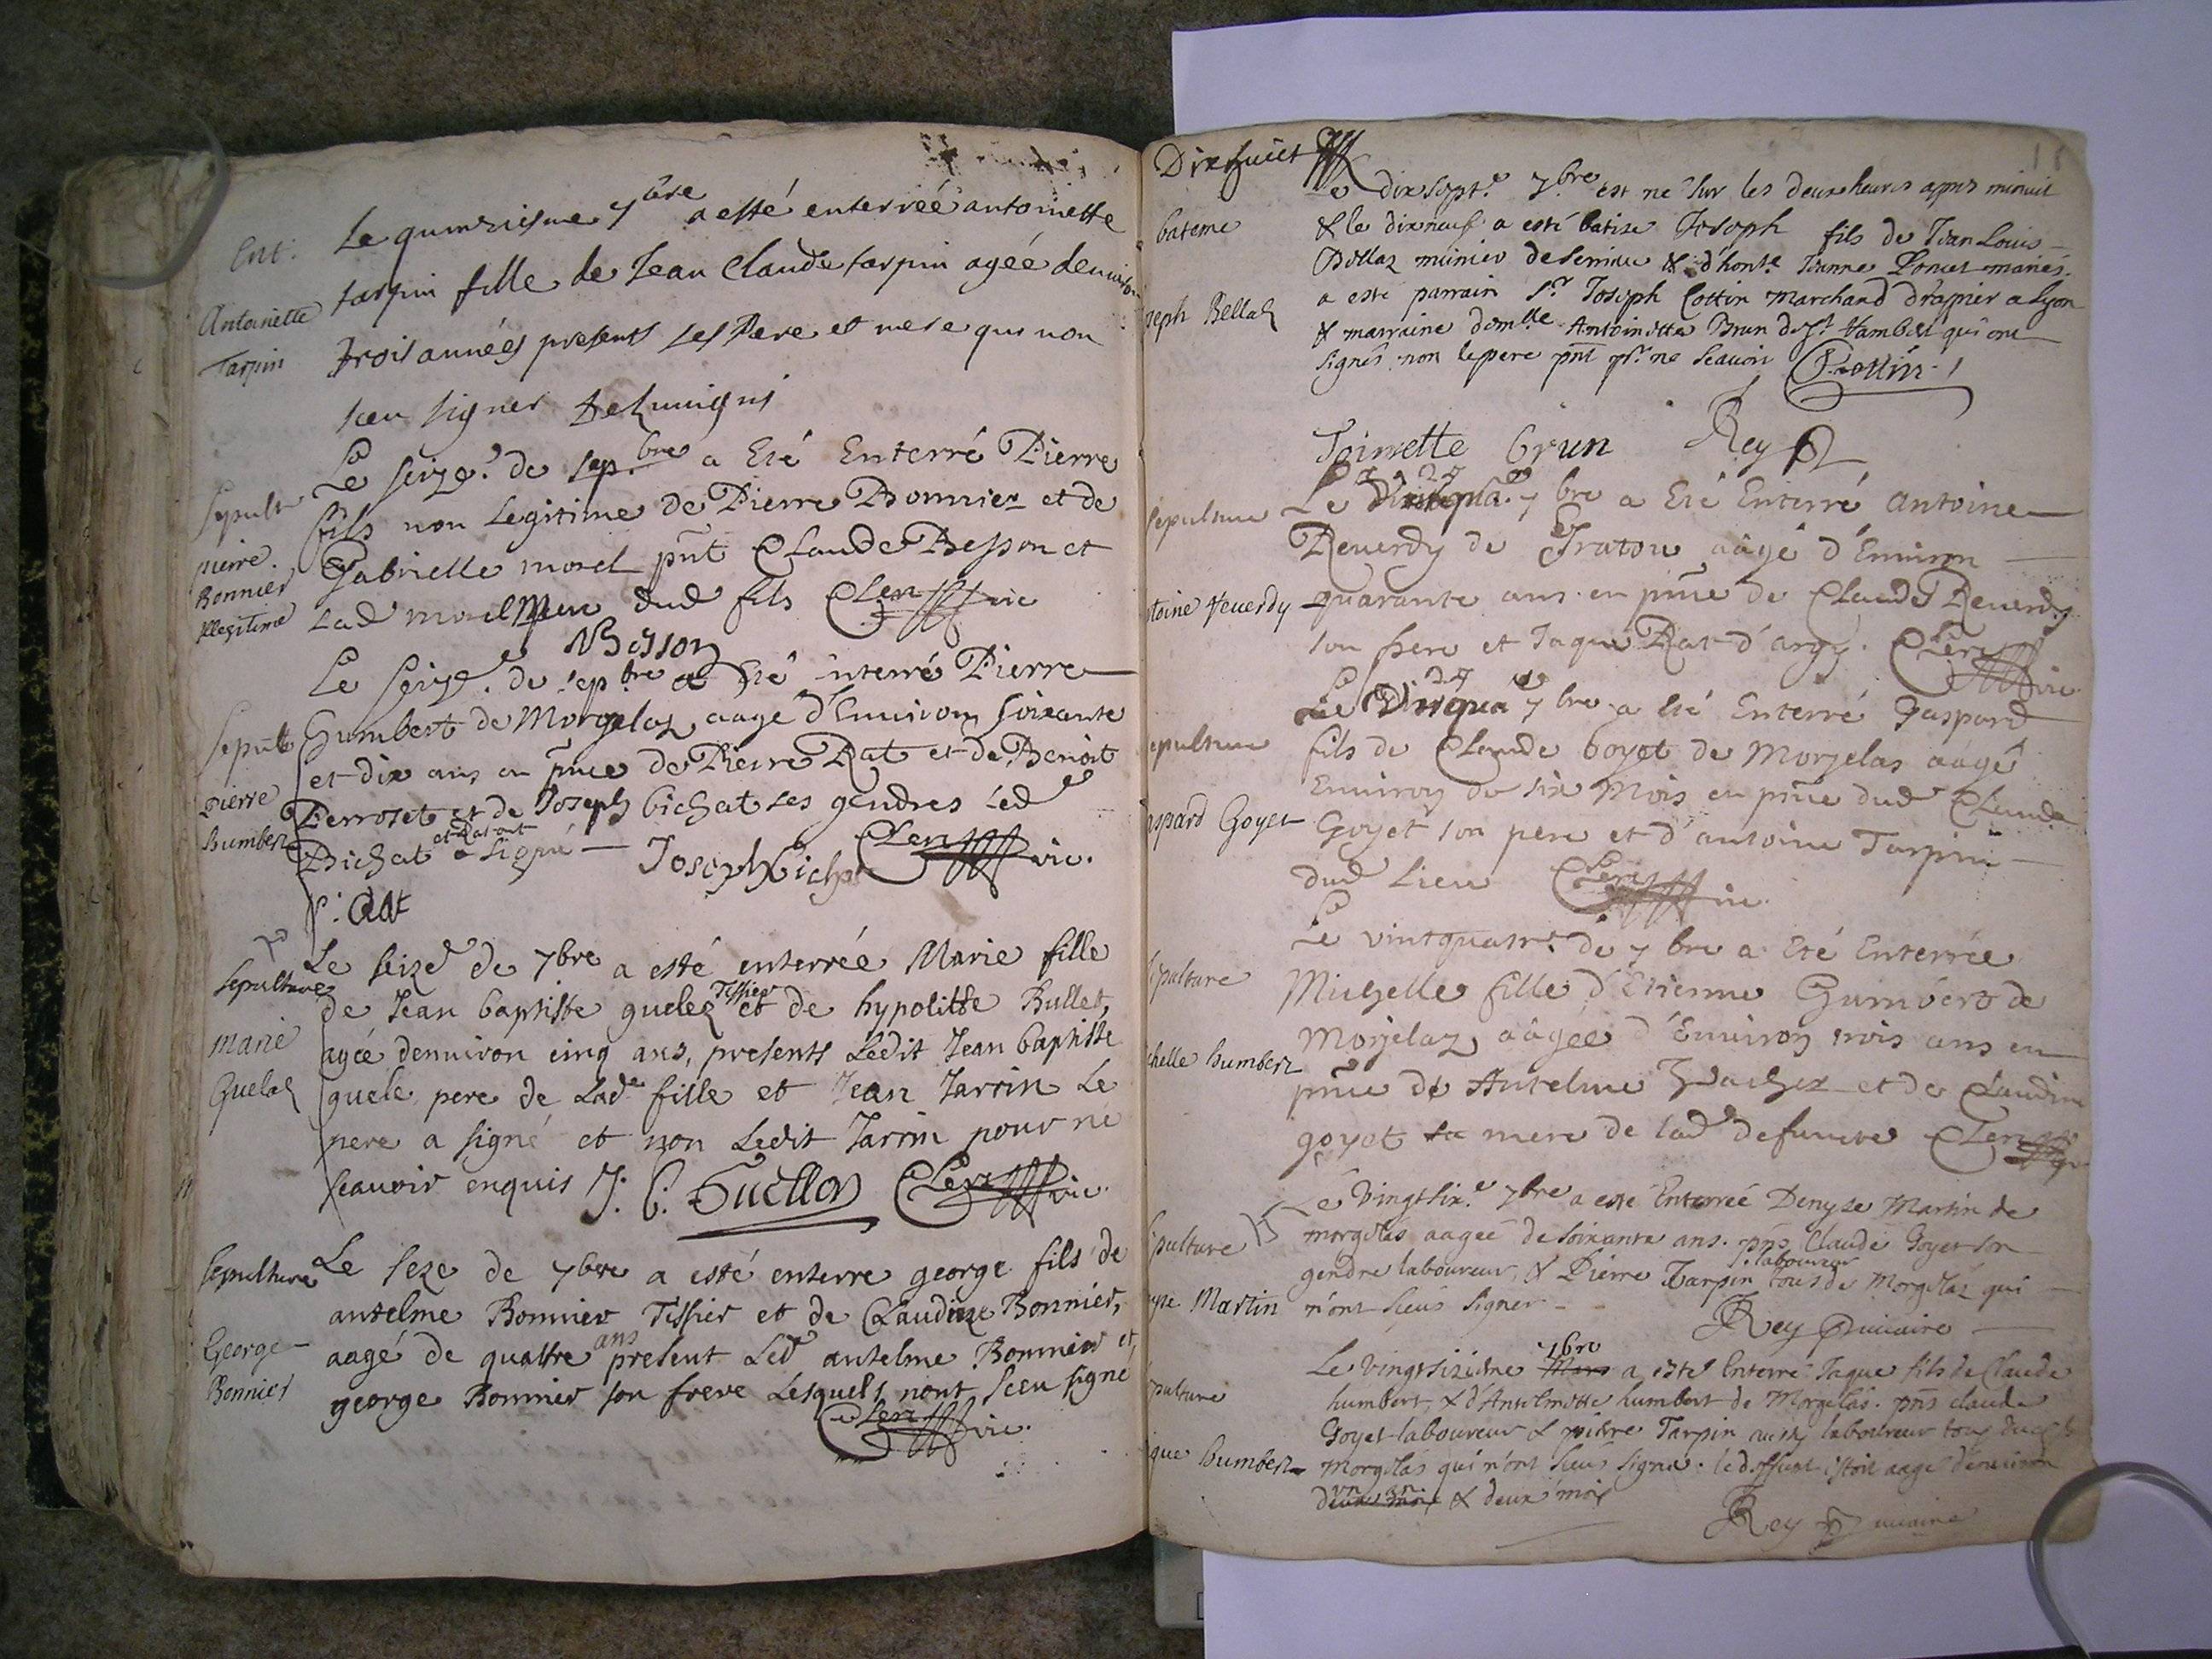 Ent:
Antoinette
Tarpin
Le quinziesme 7bre a esté enterréé antoinette
tarpin fille de Jean Claude tarpin agéé denviron
trois annéés presents ses Pere et mere qui non
sceu signer
Sepult
pierre
Bonnier
Illegitime
Le seize.e de sep.bre a Eté Enterré Pierre
fils non Legitime de Pierre Bonnier et de
Gabrielle morel pnt Claude Besson et
Lad morel mere dud fils Clerc vic
NBesson
Sepult
pierre
Humbert
Le Seize.e de sepbre a Eté interré Pierre
Humbert de Morgelaz aage d'Environ soixante
et dix ans en pnce de Pierre Rat et de Benoit
Perroset et de Joseph bichat ses gendres Led
Bichat et Rat ont a signé — Joseph bichat Clerc vic.
p: Rat
Sepulture
marie
Guelaz
Le seize de 7bre a esté enterréé Marie fille
de Jean baptiste guelez Tissier et de hypolitte Bullet,
agéé dennviron cinq ans, presents Ledit Jean baptiste
guele pere de Lad.e fille et Jean Jarrin Le
pere a signé et non Ledit Jarrin pour ne
scavoir enquis J. b. Guellon Clerc vic.
Sepulture
George
Bonnier
Le seze de 7bre a esté enterre george fils de
antelme Bonnier Tissier et de Claudine Bonnier,
aagé de quattre ans present Led antelme Bonnier et
george Bonnier son frere Lesquels nont sceu signe
Clerc vic.
Dixhuict
18
bateme
seph Bellaz
Le dixsept.e 7bre est ne sur les deux heures apres minuit
& le dixneuf a esté batise Joseph fils de Jean Louis
Bellaz munier de & d'hont.e Jeanne Poncet mariés.
a esté parrain S.r Joseph Cottin Marchand drapier a Lyon
& marraine dem.lle Antoinette Brun de St Rambert qui ont
signés non le pere pnt p.r ne scavoir Cottin
Toinette brun Rey
sepulture
toine reverdy
Le 7bre a Eté Enterré antoine
Reverdy de aâgé d'Environ
quarante ans en pnce de Claude Reverdy
son frere et Jaque Rat d'argy. Clerc vic
epulture
aspard Goyet
Le 7bre a Eté Enterré Gaspard
fils de Claude boyet de Morgelas aâgé
Environ de six Mois en pnce dud Claude
Goyet son pere et d'antoine Tarpin
dud Lieu Clerc vic.
epulture
chelle humbert
Le vintquatr.e de 7bre a Eté Enterrée
Michelle fille d'Etienne Humbert de
Morjelaz aâgee d'Environ trois ans en
pnce de Antelme et de Claudine
goyet sa mere de lad defuncte Clerc
epulture
nyse Martin
Le Vingtsix.e 7bre a esté Enterreé Denyse Martin de
morgelas aageé de soixante ans. pnts Claude Goyet son
gendre laboureur, & Pierre Tarpin laboureur tous de Morgelaz qui
n'ont sceus signer
Rey vicaire
epulture
aque humbert
Le vingtsixiesme Mars 7bre a este Enterré Jaque fils de Claude
humbert, & d'Antelmette humbert de Morgelas. pnts claude
Goyet laboureur & pierre Tarpin aussy laboureur tous dud
Morgelas qui n'ont sceus signer. le deffunt estoit aagé denviron
un an & deux mois
Rey vicaire